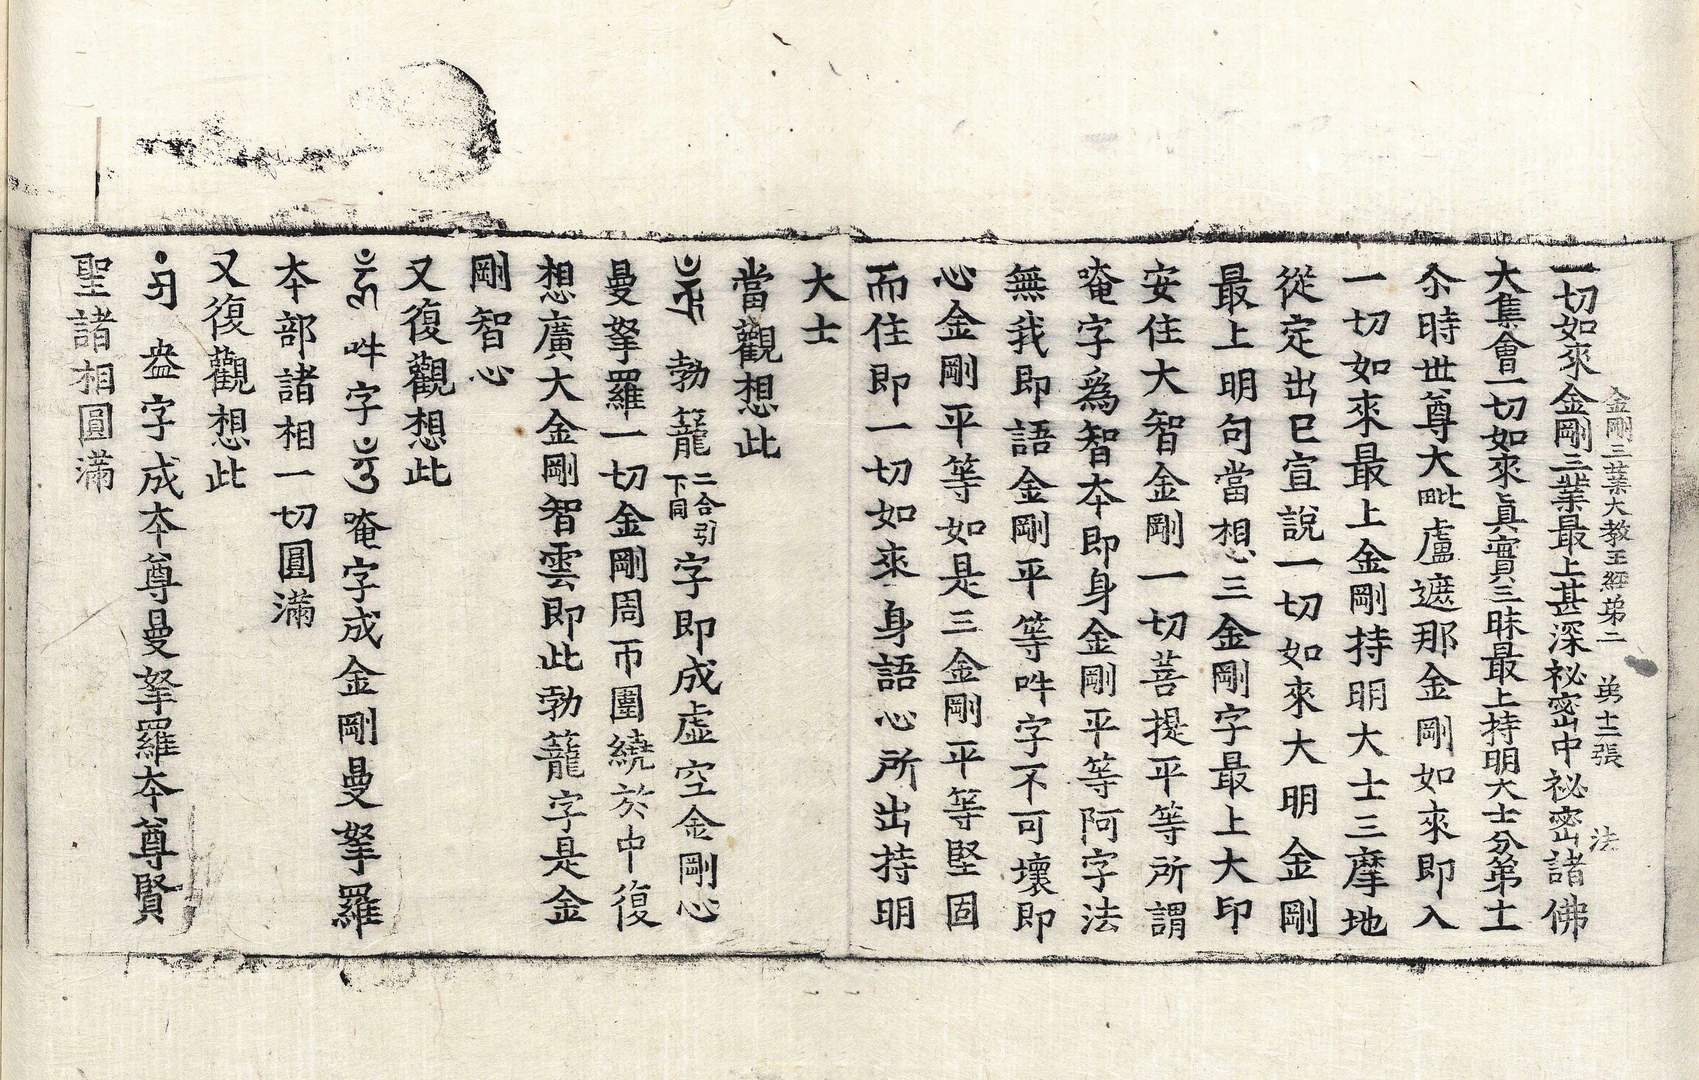 金剛三業大教王經第二　第十二張　法
一切如來金剛三業最上甚深祕密中祕密諸佛
大集會一切如來眞實三昧最上持明大士分第十
尒時世尊大毗盧遮那金剛如來即入
一切如來最上金剛持明大士三摩地
從定出已宣說一切如來大明金剛
最上明句當想三金剛字最上大印
安住大智金剛一切菩提平等所謂
唵字爲智夲即身金剛平等阿字法
無我即語金剛平等吽字不可壞即
心金剛平等如是三金剛平等堅固
而住即一切如來身語心所出持明
大士
當觀想此
勃籠二合引下同字即成虛空金剛心
曼拏羅一切金剛周帀圍繞於中復
想廣大金剛智雲即此勃籠字是金
剛智心
又復觀想此
吽字唵字成金剛曼拏羅
夲部諸相一切圓滿
又復觀想此
盎字成夲尊曼拏羅夲尊賢
聖諸相圓滿